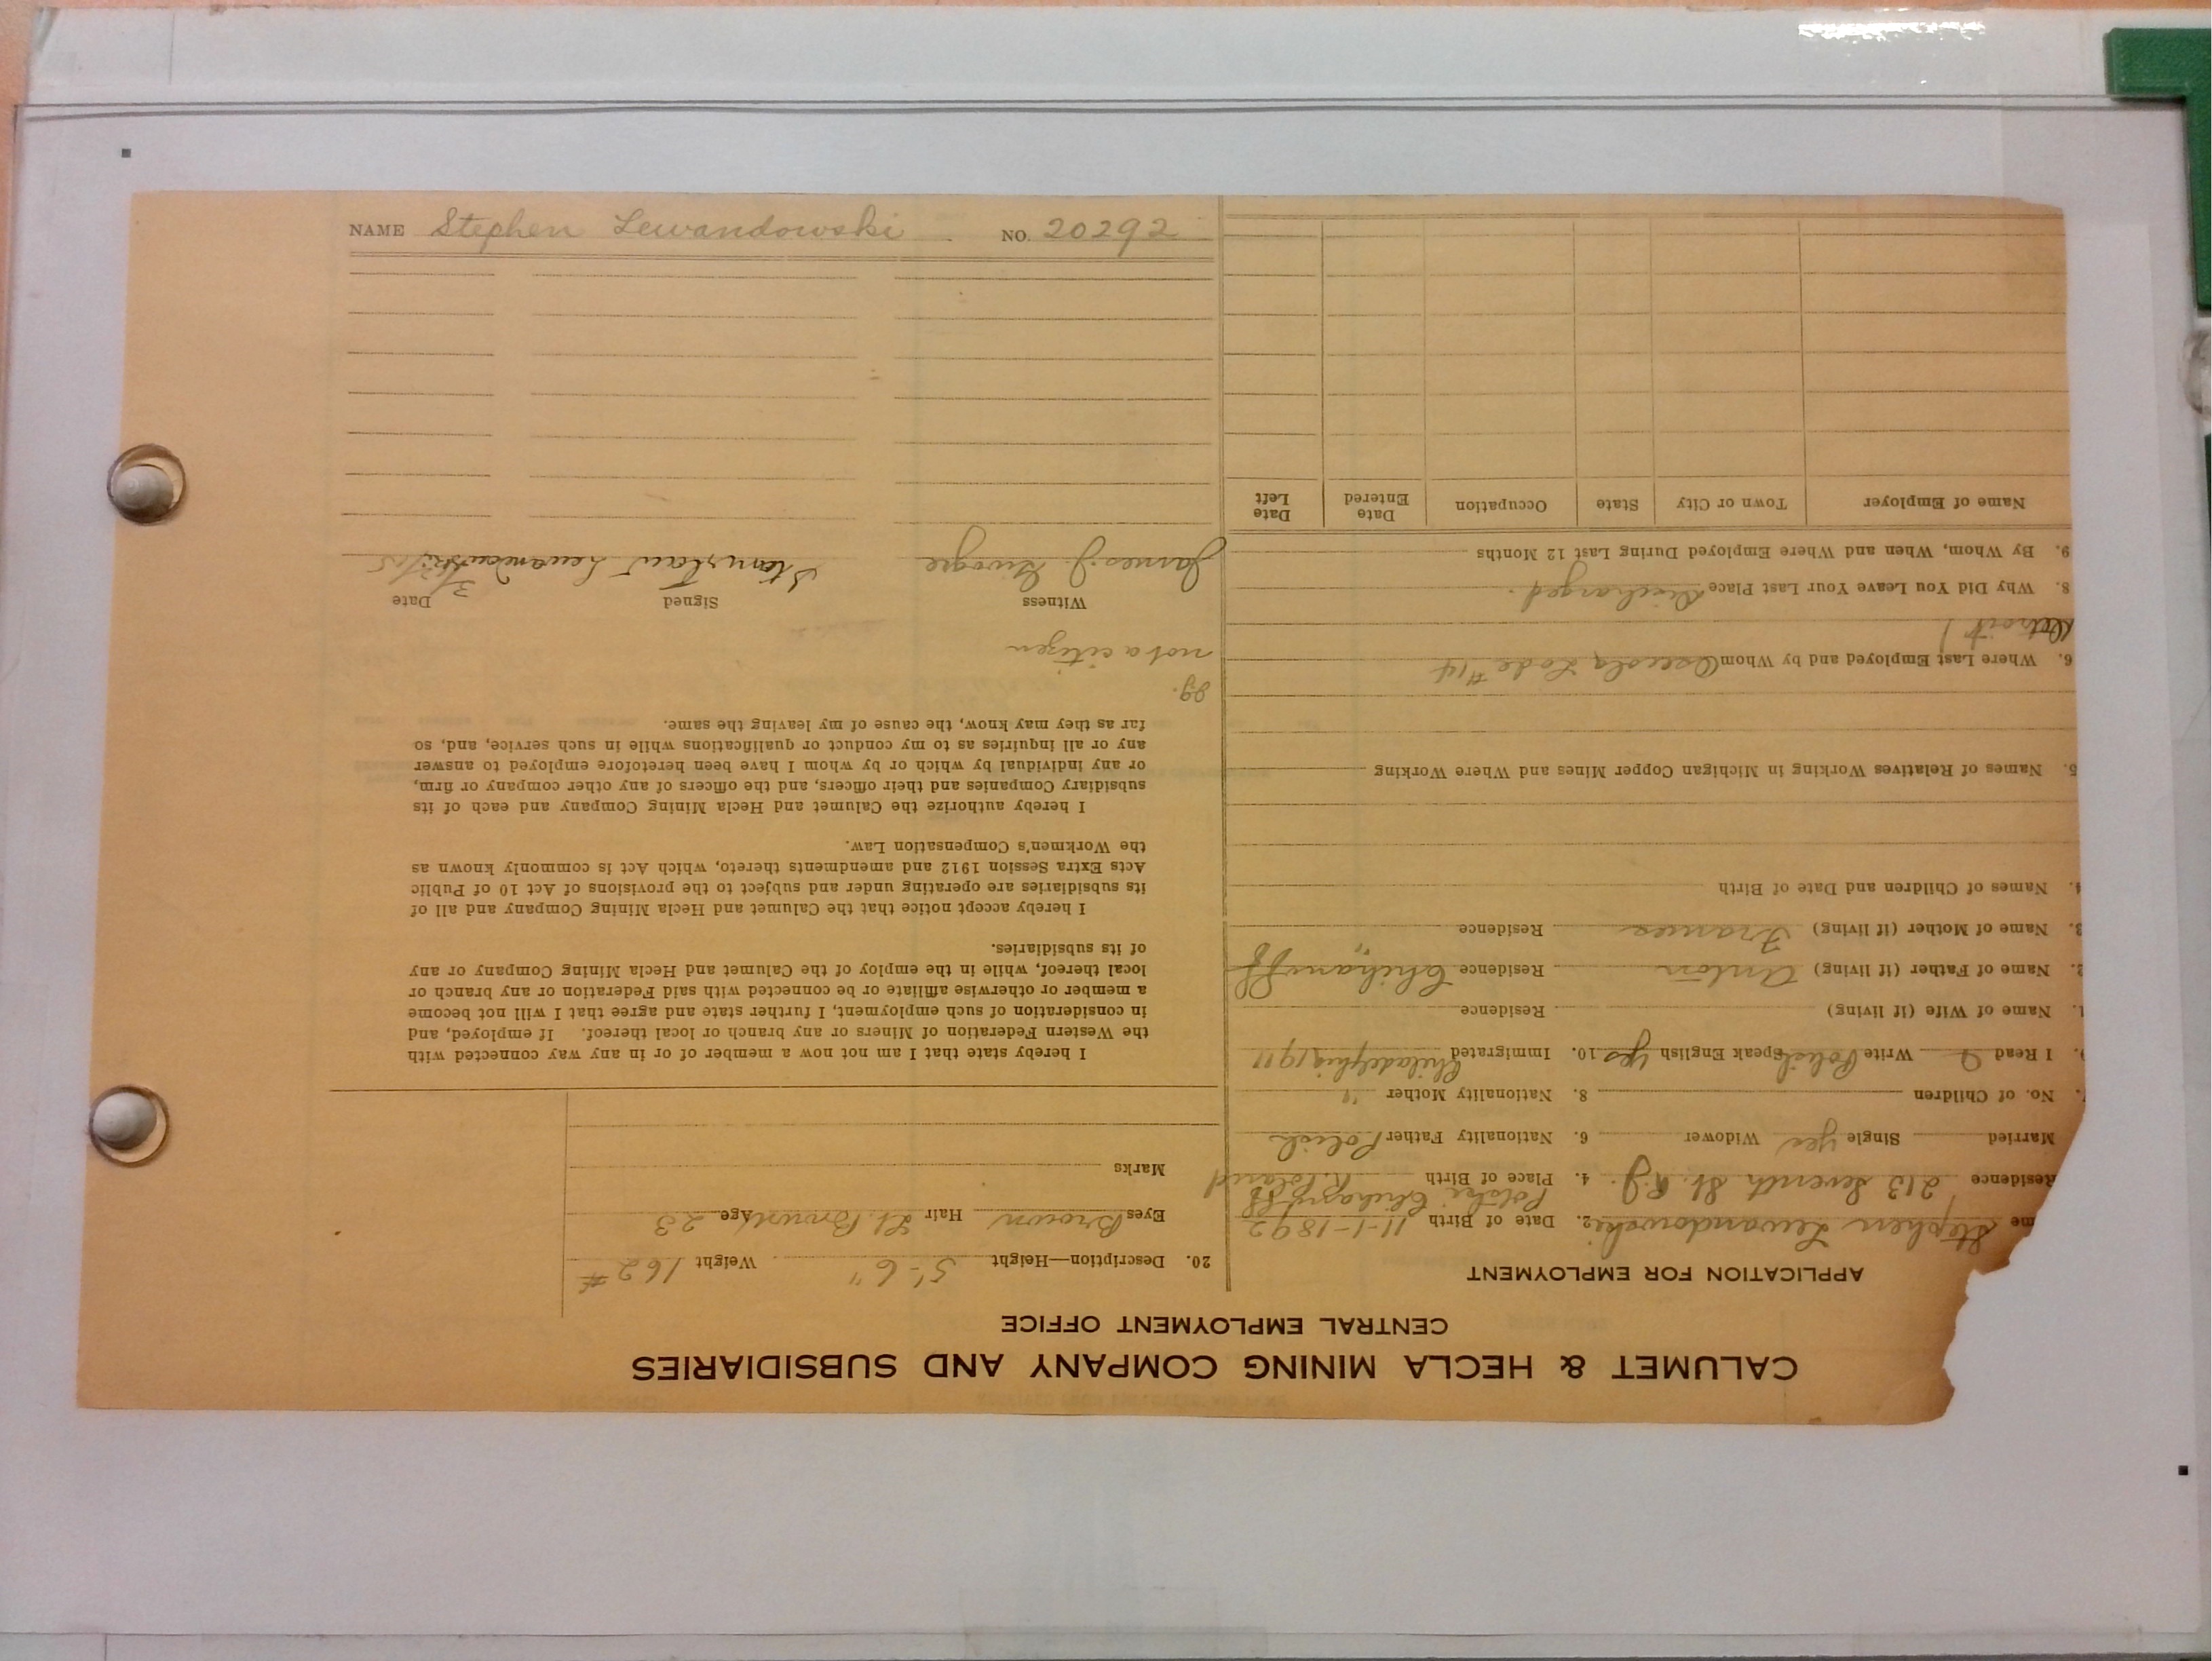 CALUMET & HECLA MINING COMPANY AND SUBSIDIARIES
CENTRAL EMPLOYMENT OFFICE
APPLICATION FOR EMPLOYMENT
me Stephen Lewandowski 2. Date of Birth 11-1-1892
Residence 213 Seventh St. R.J. 4. Place of Birth R. Poland
Married Single yes Widower 6. Nationality Father Polish
7. No. of Children 8. Nationality Mother "
9. I Read Write Polish Speak English yes 10. Immigrated Philadelphia 1911
1. Name of Wife (if living) Residence
2. Name of Father (if living) Anton Residence
3. Name of Mother (if living) Frances Residence "
4. Names of Children and Date of Birth
5. Names of Relatives Working in Michigan Copper Mines and Where Working
6. Where Last Employed and by Whom Osceola Lode #14
Detroit
8. Why Did You Leave Your Last Place Discharged.
9. By Whom, When and Where Employed During Last 12 Months
Name of Employer Town or City State Occupation Date Entered Date Left
20. Description—Height 5'-6" Weight 162#
Eyes Brown Hair Lt. Brown Age 23
Marks
I hereby state that I am not now a member of or in any way connected with
the Western Federation of Miners or any branch or local thereof. If employed, and
in consideration of such employment, I further state and agree that I will not become
a member or otherwise affiliate or be connected with said Federation or any branch or
local thereof, while in the employ of the Calumet and Hecla Mining Company or any
of its subsidiaries.
I hereby accept notice that the Calumet and Hecla Mining Company and all of
its subsidiaries are operating under and subject to the provisions of Act 10 of Public
Acts Extra Session 1912 and amendments thereto, which Act is commonly known as
the Workmen's Compensation Law.
I hereby authorize the Calumet and Hecla Mining Company and each of its
subsidiary Companies and their officers, and the officers of any other company or firm,
or any individual by which or by whom I have been heretofore employed to answer
any or all inquiries as to my conduct or qualifications while in such service, and, so
far as they may know, the cause of my leaving the same.
not a citizen
Witness Signed Date
James J. Stanislaw Lewandowski
NAME Stephen Lewandowski NO. 20292